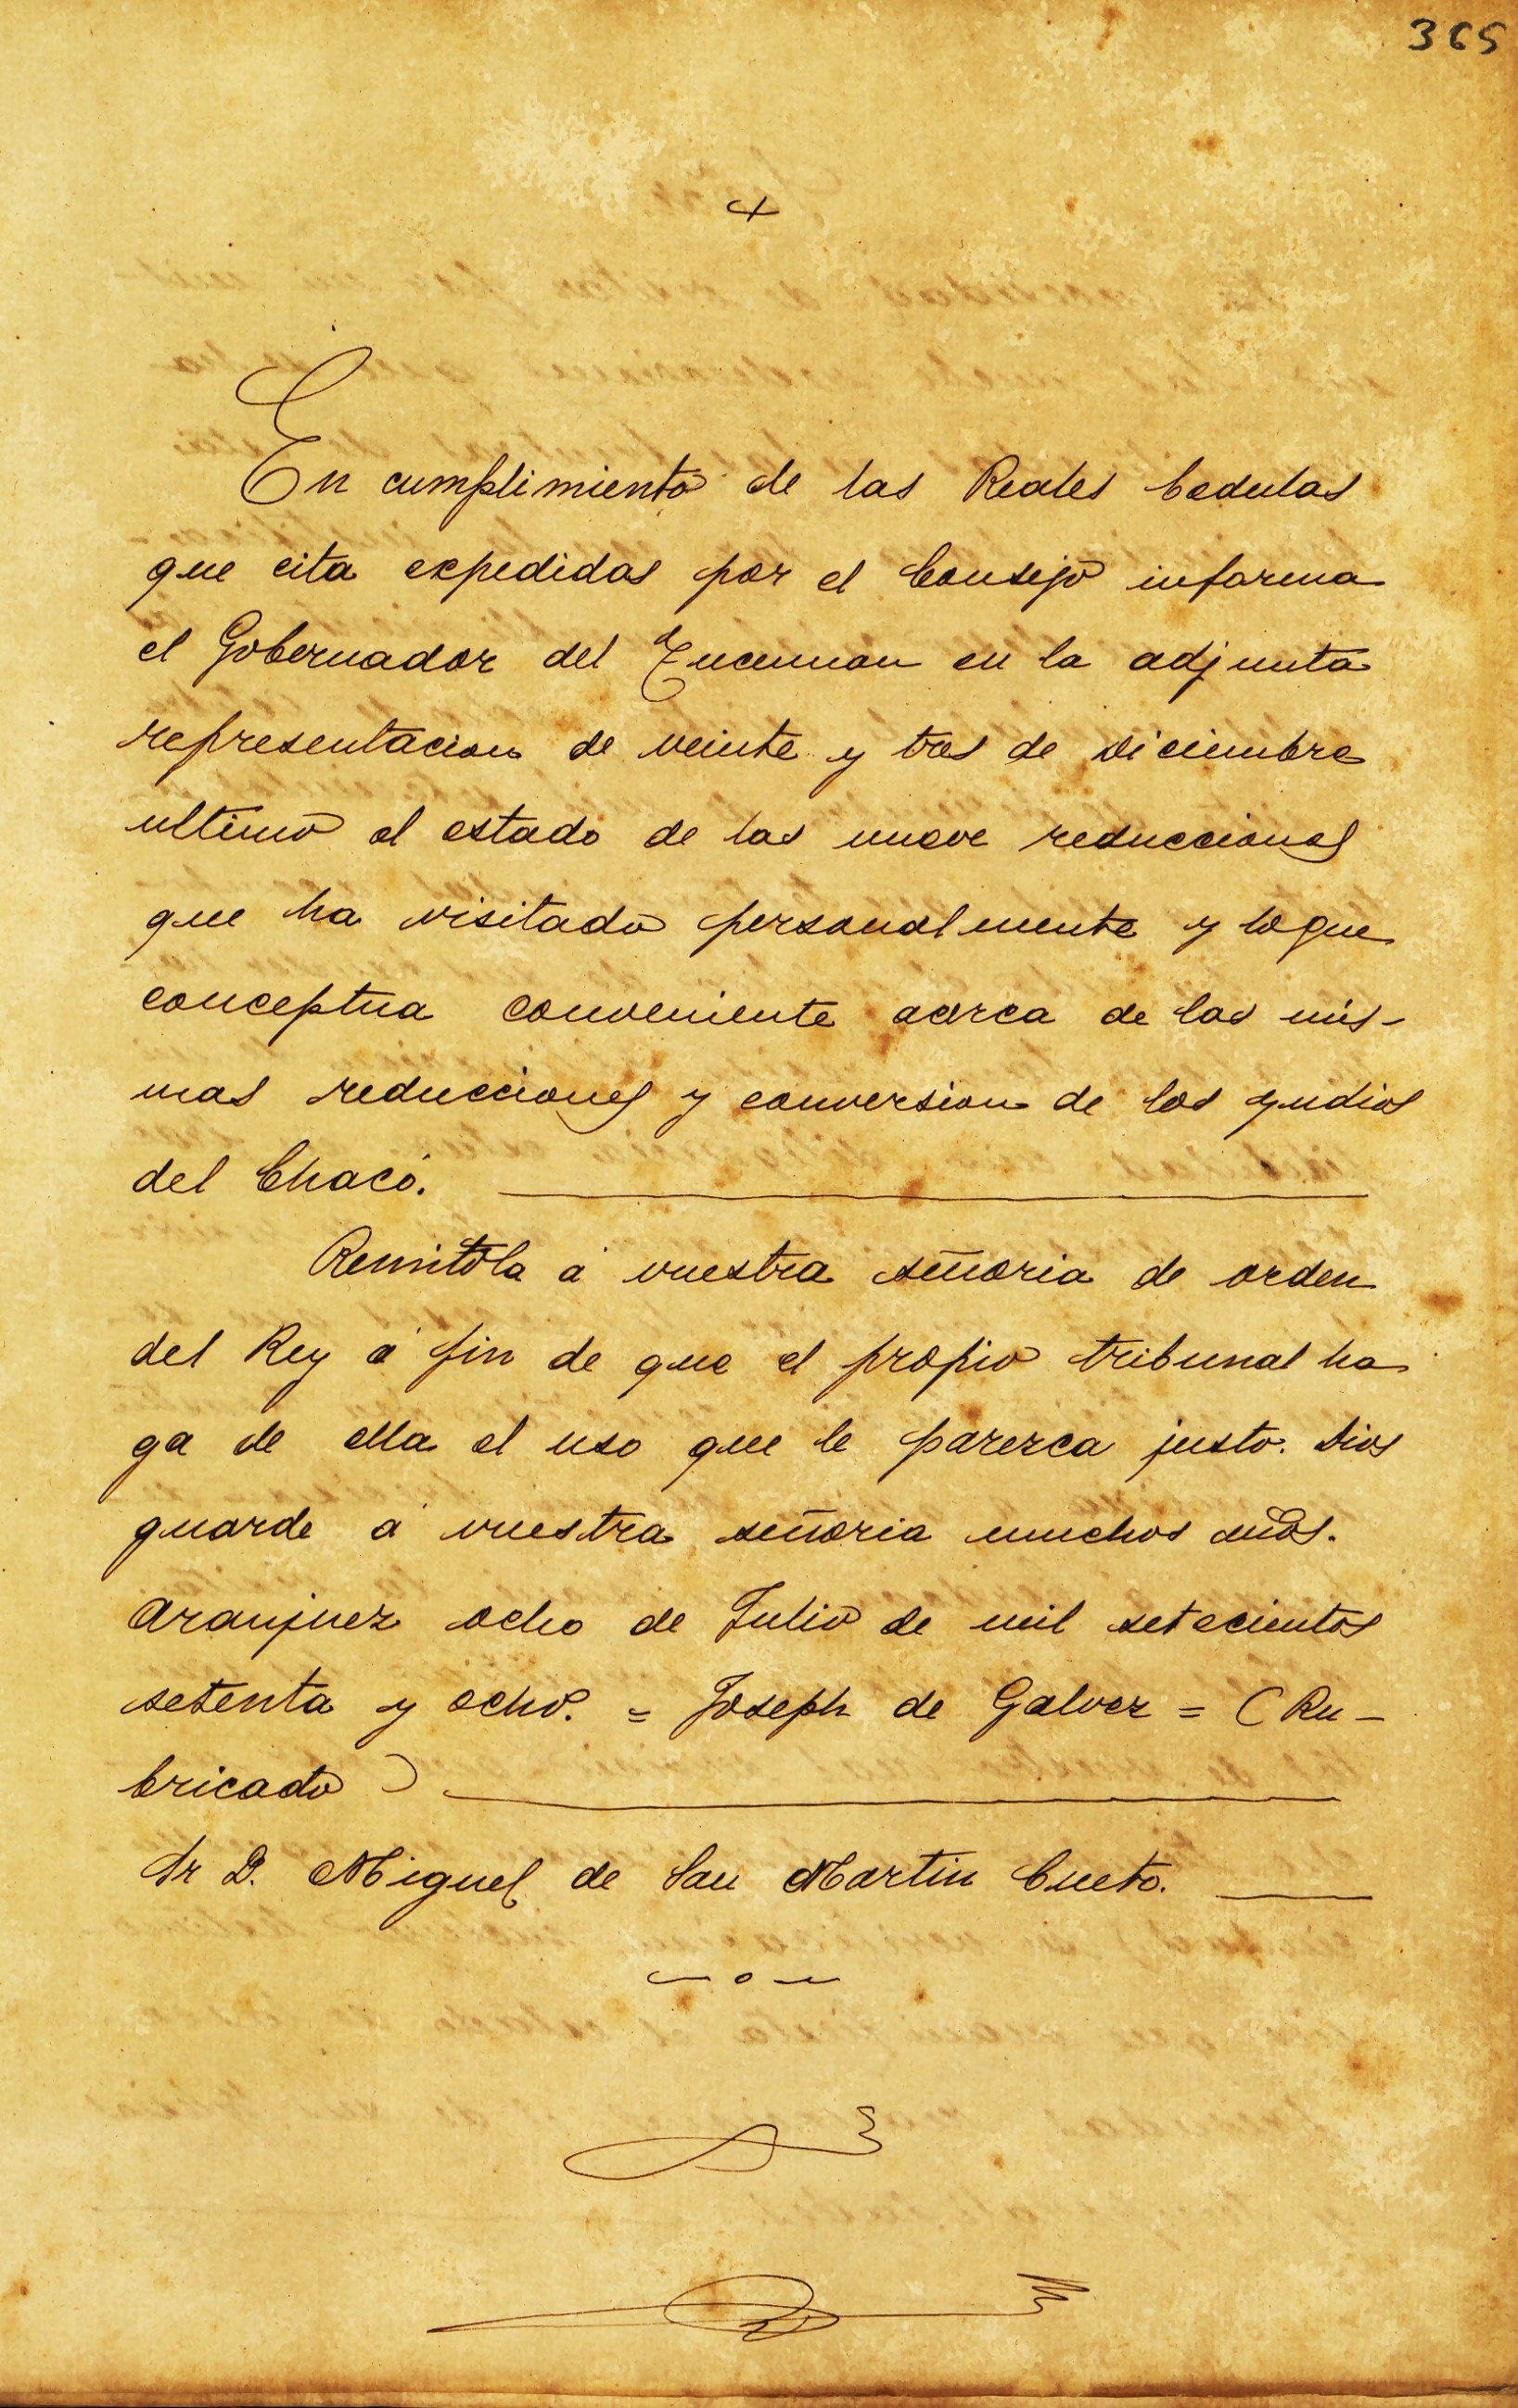 365
En cumplimiento de las Reales Cedulas
que cita expedidas por el Consejo informa
el Gobernador del Tucuman en la adjunta
representacion de veinte y tres de Diciembre
ultimo el estado de las nueve reducciones
que ha visitado personalmente y loque
conceptua conveniente acerca de las mis-
mas reducciones y conversion de los yndios
del Chaco.
Remitola á vuestra señoria de orden
del Rey á fin de que el propio tribunal ha
ga de ella el uso que le parezca justo. Dios
guarde á vuestra señoria muchos años.
Aranjuez ocho de Julio de mil setecientos
setenta y ocho. = Joseph de Galvez = (Ru-
bricado)
Sr D. Miguel de San Martin Cueto.